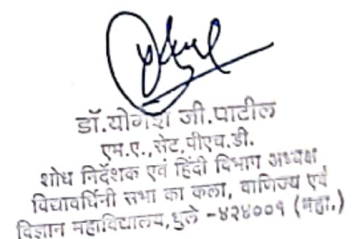 डॉ.योगेश जी.पाटील
एम.ए.,सेट,पीएच.डी.
शोध निर्देशक एवं हिंदी विभाग अध्यक्ष
विद्यावर्धिनी सभा का कला, वाणिज्य एवं
विज्ञान महाविद्यालय,धुले -४२४००१ (महा.)